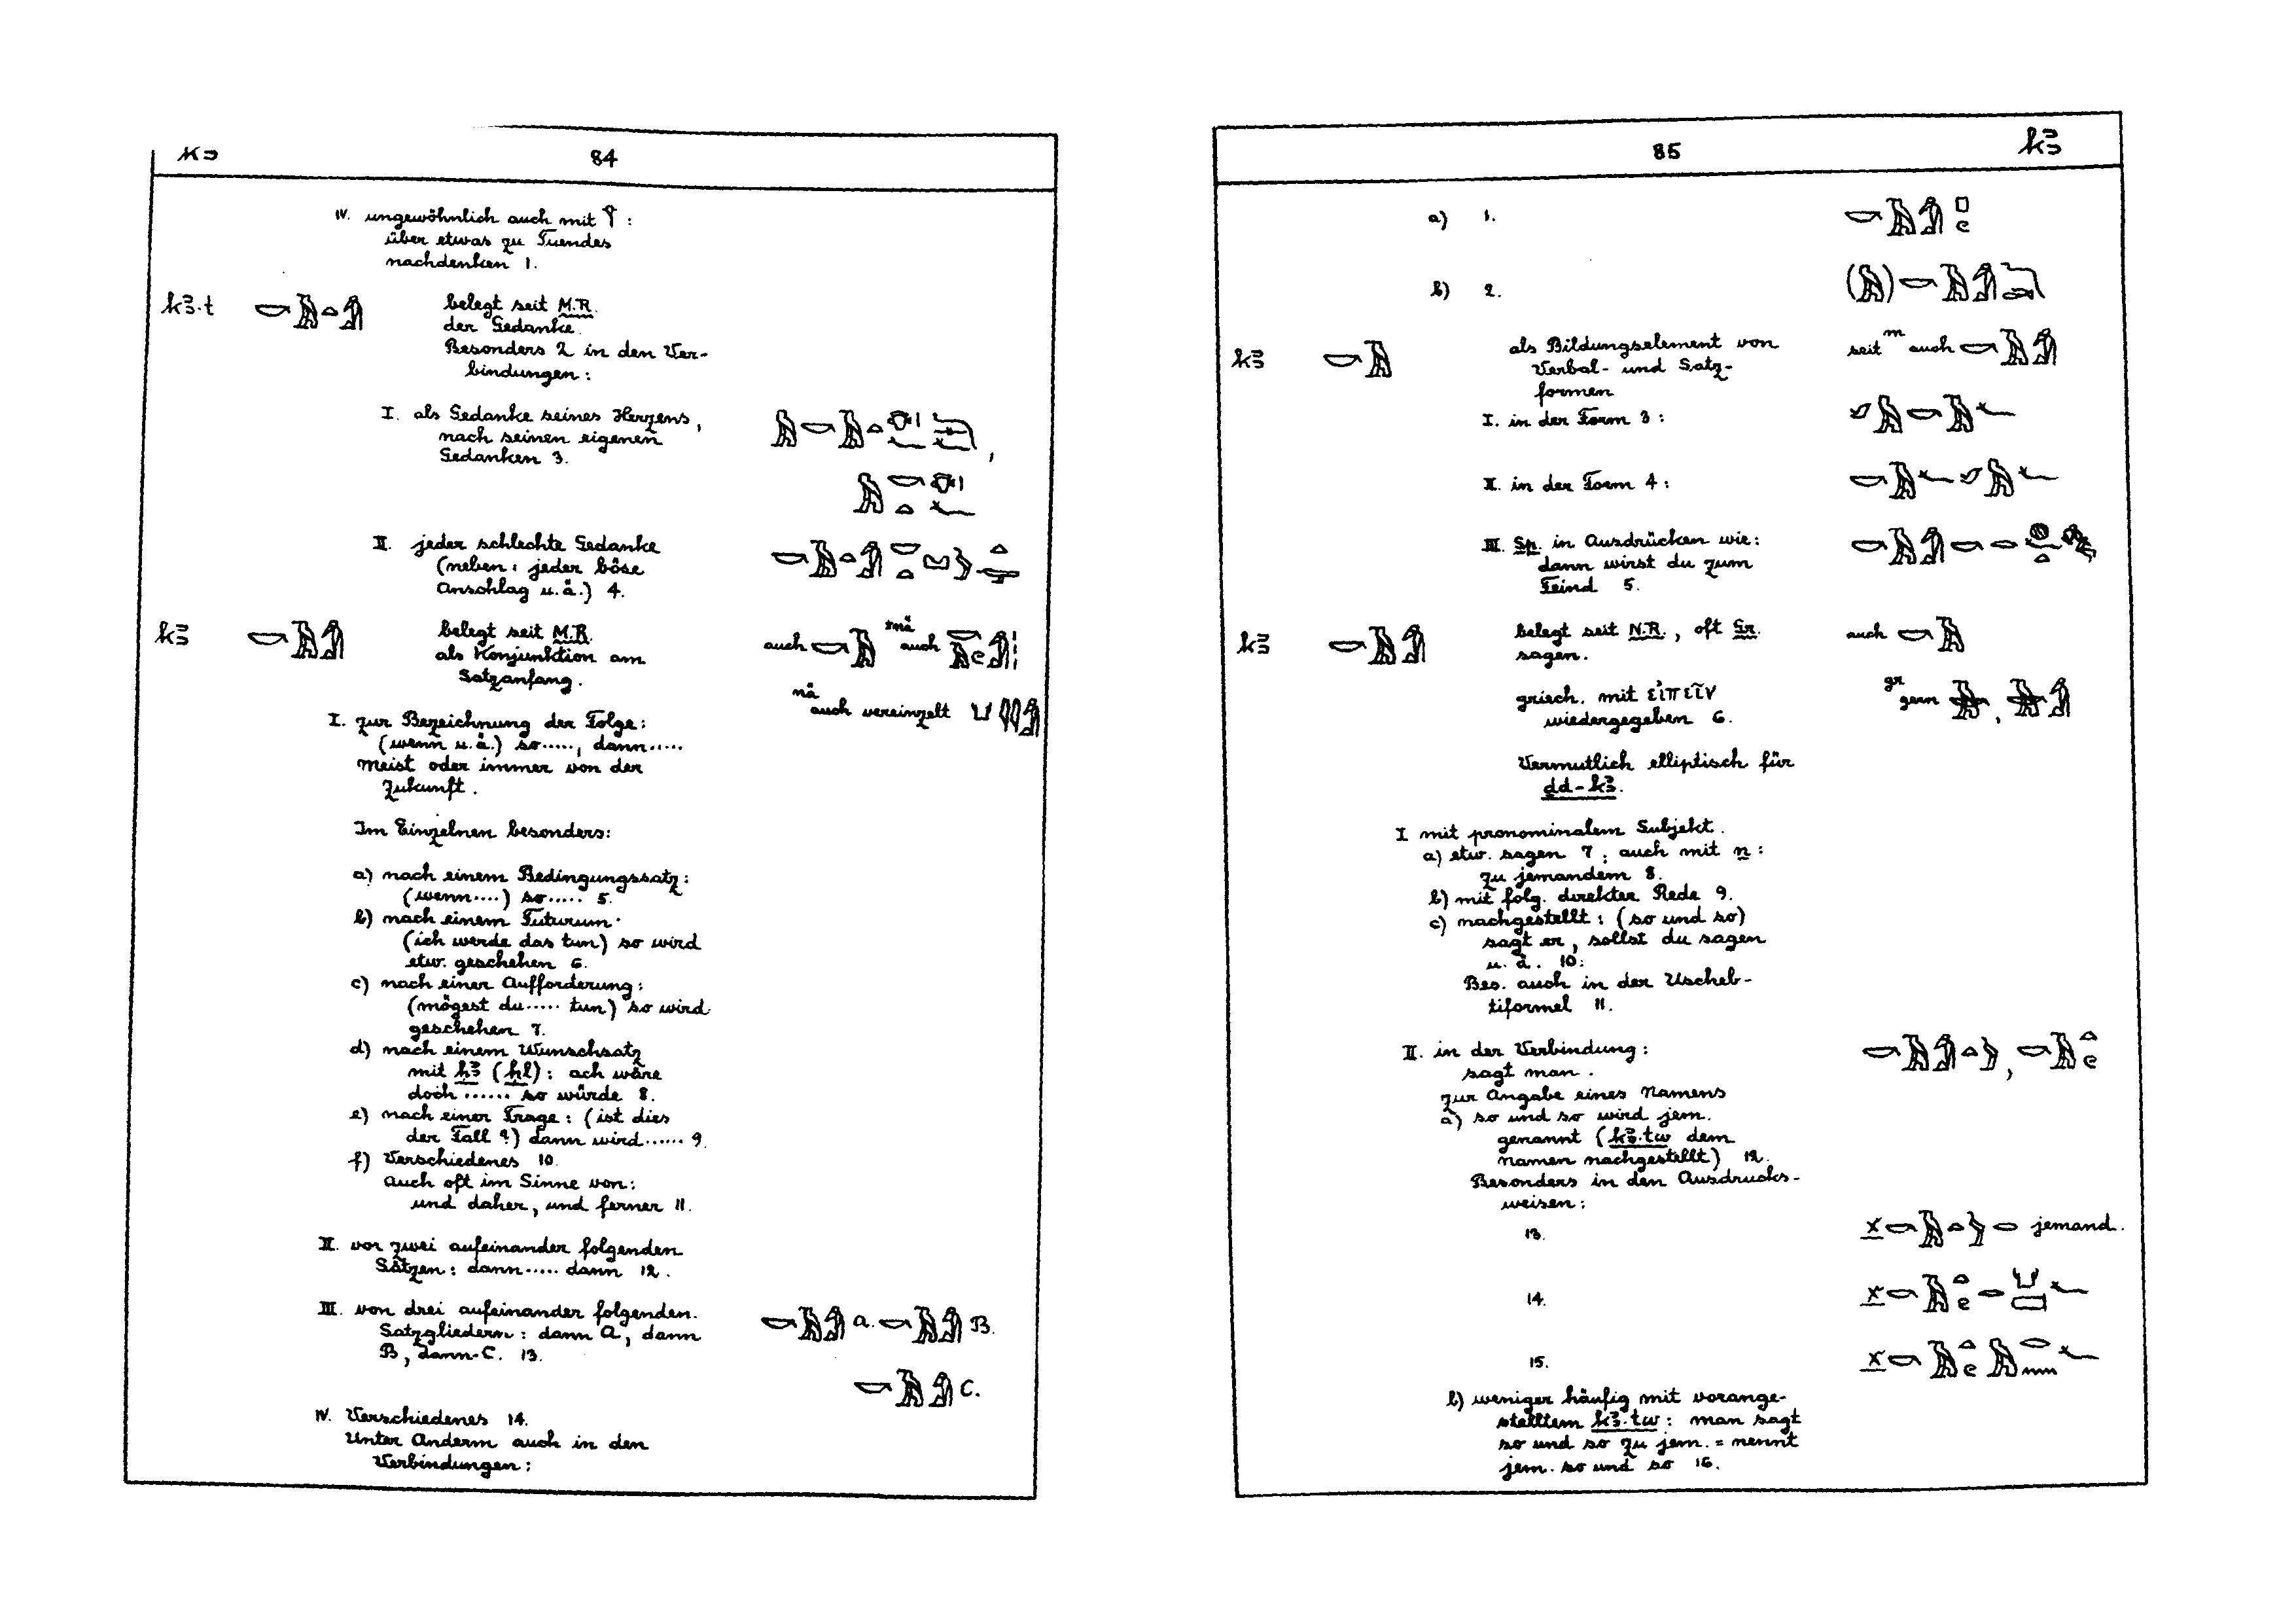 kꜣ 84
IV. ungewöhnlich auch mit 𓁷 :
über etwas zu Tuendes
nachdenken 1.
kꜣ·t 𓎡𓄿𓏏𓀁 belegt seit M.R.
der Gedanke.
Besonders 2 in den Ver-
bindungen:
I. als Gedanke seines Herzens,
nach seinen eigenen
Gedanken 3.
II. jeder schlechte Gedanke
(neben: jeder böse
Anschlag u.ä.) 4.
kꜣ 𓎡𓄿𓀁 belegt seit M.R. auch 𓎡𓄿 auch
als Konjunktion am
Satzanfang.
nä
auch vereinzelt 𓂓𓇌𓀁
I. zur Bezeichnung der Folge:
(wenn u.ä.) so....., dann.....
meist oder immer von der
Zukunft.
Im Einzelnen besonders:
a) nach einem Bedingungssatz:
(wenn....) so..... 5.
b) nach einem Futurum.
(ich werde das tun) so wird
etw. geschehen 6.
c) nach einer Aufforderung:
(mögest du..... tun) so wird
geschehen 7.
d) nach einem Wunschsatz
mit ḥꜣ (ḥl): ach wäre
doch ...... so würde 8.
e) nach einer Frage: (ist dies
der Fall?) dann wird...... 9.
f) Verschiedenes 10.
auch oft im Sinne von:
und daher, und ferner 11.
II. vor zwei aufeinander folgenden
Sätzen: dann..... dann 12.
III. von drei aufeinander folgenden. 𓎡𓄿𓀁 A. 𓎡𓄿𓀁 B.
Satzgliedern: dann A, dann
B, dann C. 13.
𓎡𓄿𓀁 C.
IV. Verschiedenes 14.
Unter Anderm auch in den
Verbindungen:
85 kꜣ
a) 1. 𓎡𓄿𓀁𓊪𓏲
b) 2.
kꜣ 𓎡𓄿 als Bildungselement von seit m auch 𓎡𓄿𓀁
Verbal- und Satz-
formen
I. in der Form 3: 𓅷𓄿𓎡𓄿𓆑
II. in der Form 4: 𓎡𓄿𓆑𓅷𓄿𓆑
III. Sp. in Ausdrücken wie:
dann wirst du zum
Feind 5.
kꜣ 𓎡𓄿𓀁 belegt seit N.R., oft Gr. auch 𓎡𓄿
sagen.
griech. mit εἰπεῖν gr gern
wiedergegeben 6.
Vermutlich elliptisch für
ḏd-kꜣ.
I mit pronominalem Subjekt.
a) etw. sagen 7; auch mit n:
zu jemandem 8.
b) mit folg. direkter Rede 9.
c) nachgestellt: (so und so)
sagt er, sollst du sagen
u. ä. 10.
Bes. auch in der Uscheb-
tiformel 11.
II. in der Verbindung: 𓎡𓄿𓀁𓏏𓅱, 𓎡𓄿𓏏𓏲
sagt man.
zur Angabe eines Namens
a) so und so wird jem.
genannt (kꜣ·tw dem
Namen nachgestellt) 12.
Besonders in den Ausdrucks-
weisen:
13. x 𓎡𓄿𓏏𓅱𓂋 jemand.
14. x 𓎡𓄿𓏏𓏲𓂋𓂓𓈙𓆑
15. x 𓎡𓄿𓏏𓏲𓅓𓂋𓈖𓆑
b) weniger häufig mit vorange-
stelltem kꜣ·tw: man sagt
so und so zu jem. = nennt
jem. so und so 16.